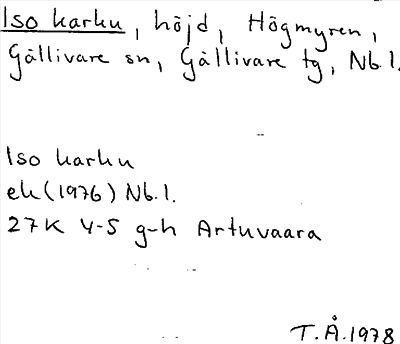 Iso karhu, höjd, Högmyren,
Gällivare sn, Gällivare tg, Nb.l.
Iso karhu
ek (1976) Nb.l.
27K 4-5 g-h Artuvaara
T.Å.1978